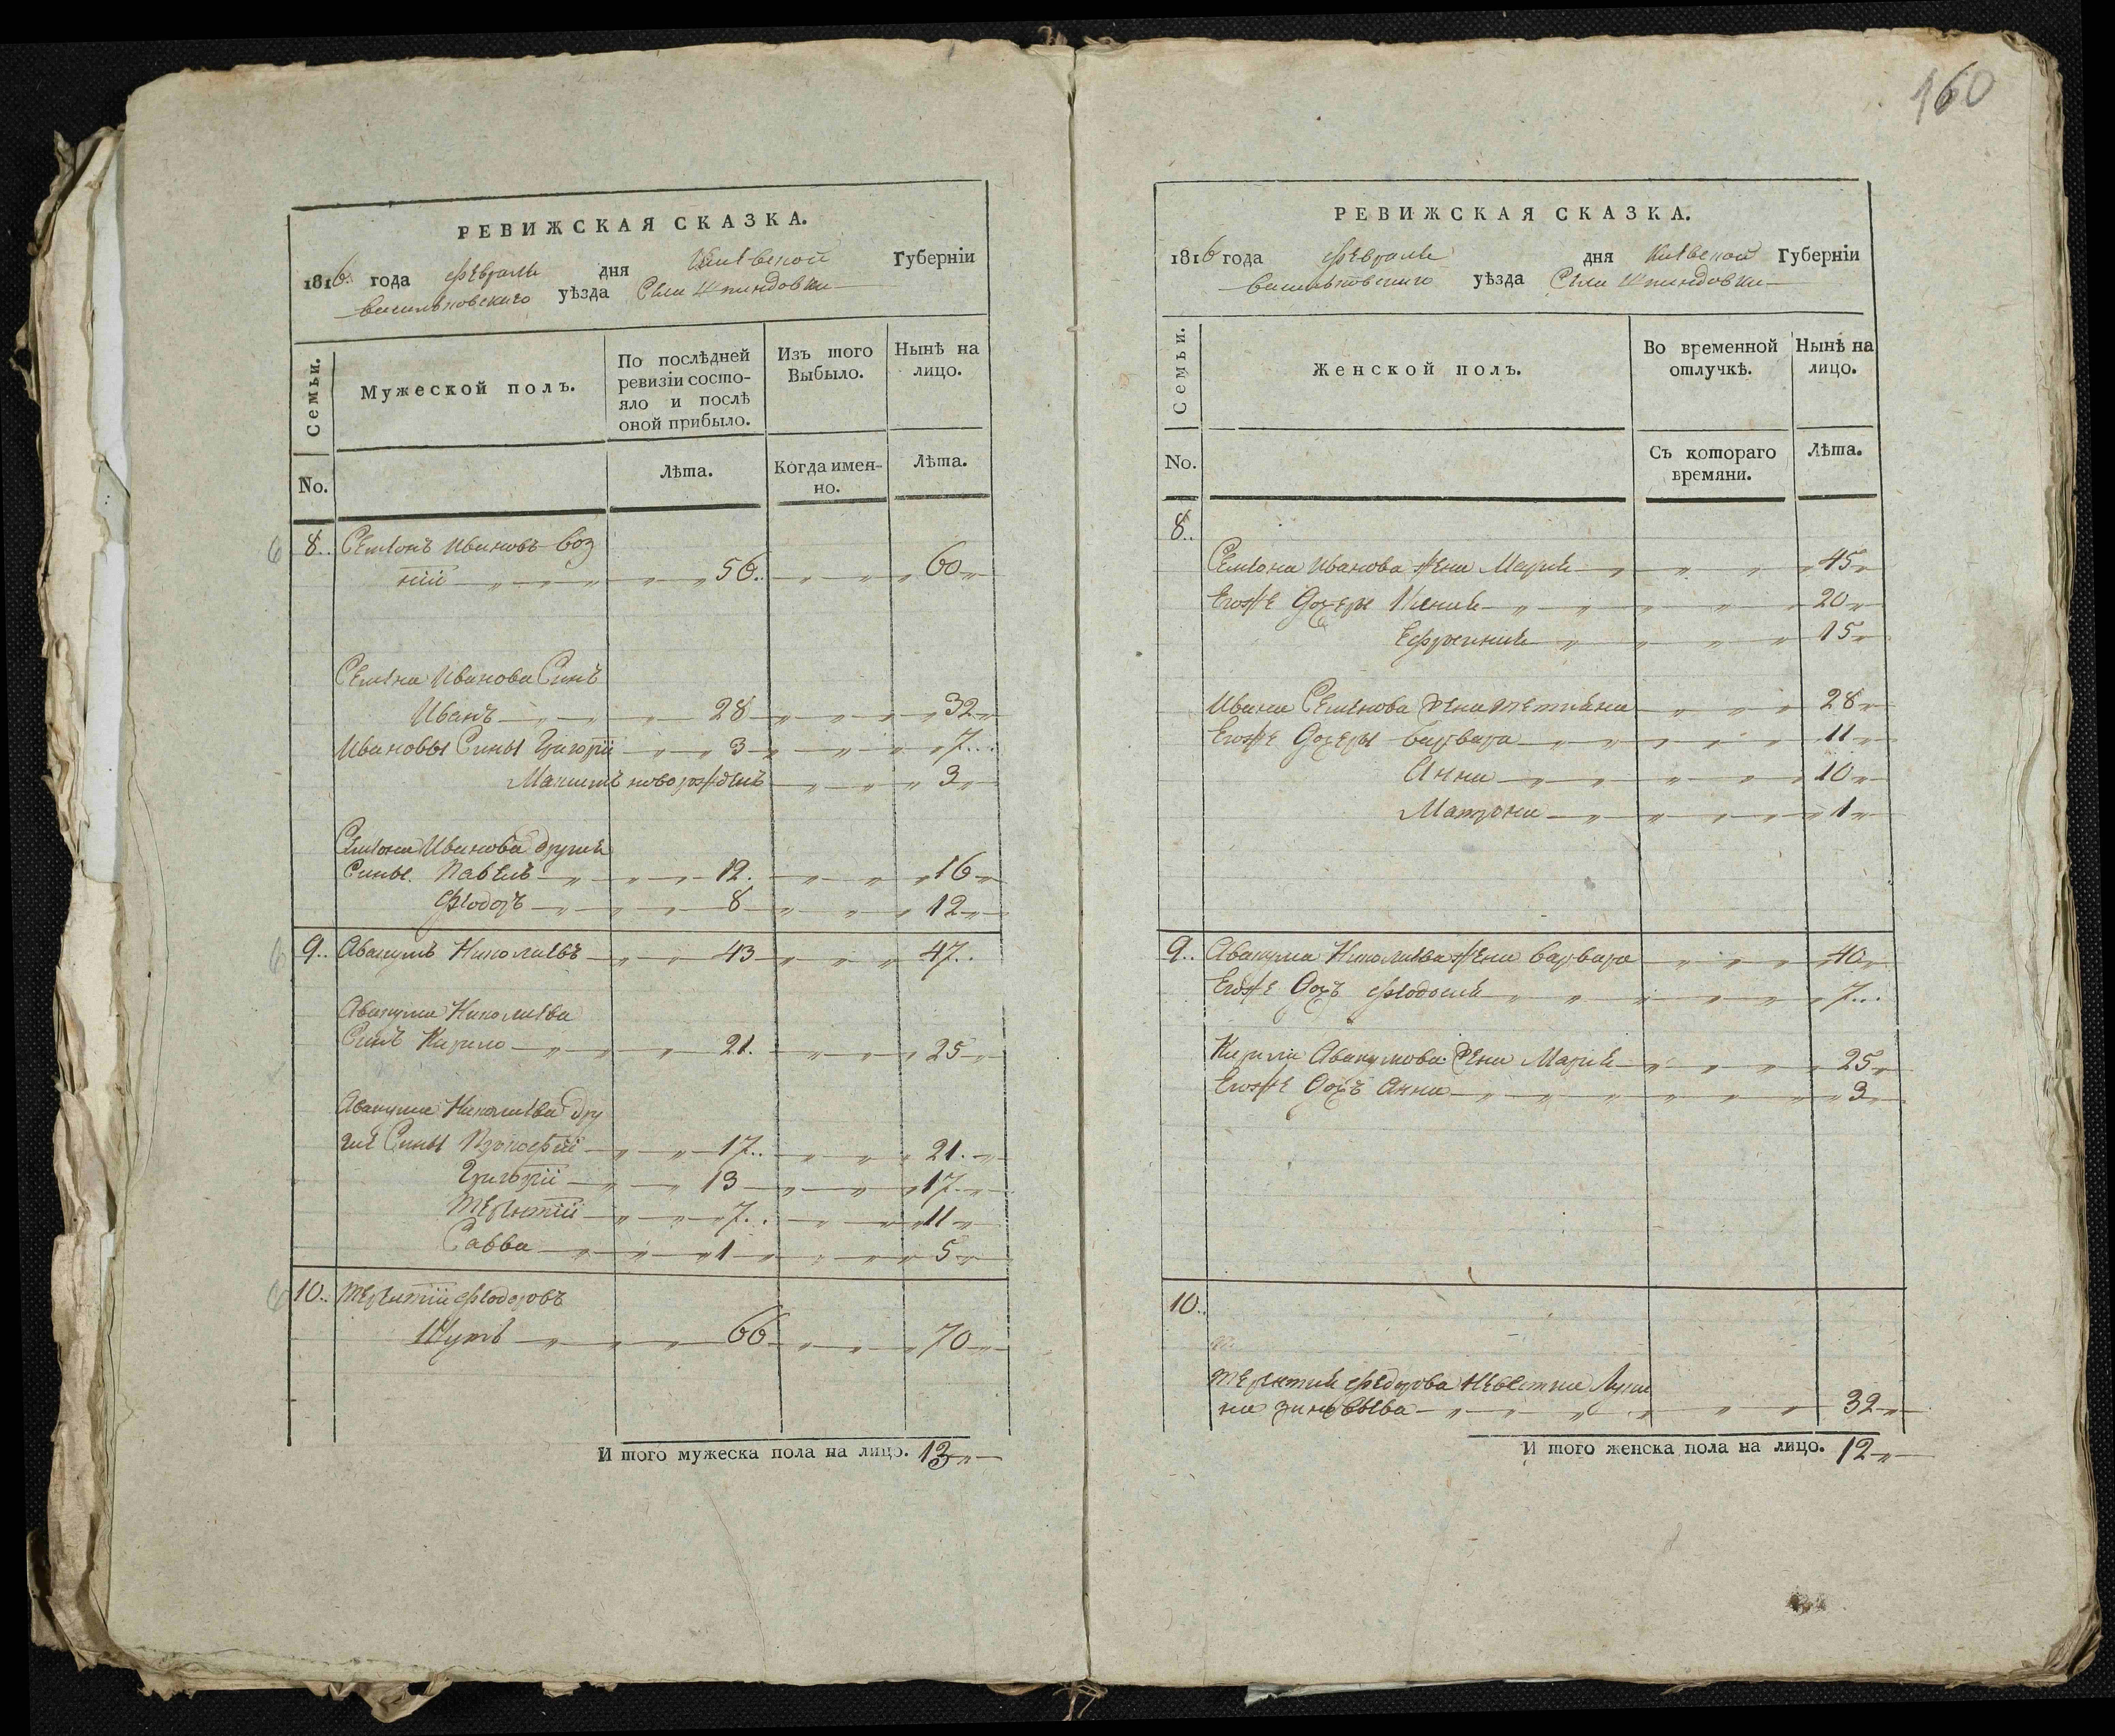 160
РЕВИЖСКАЯ СКАЗКА.
1816 года февраля дня Киевской Губерніи
васильковского уѣзда Села Шпиндовки
Семьи.
Мужеской полъ.
По послѣдней ревизіи состо-
яло и послѣ
оной прибыло.
Изъ того
Выбыло.
Нынѣ на
лицо.
No.
Лѣта.
Когда имея-
но.
Лѣта.
8.. Семіонъ Ивановъ Воз
ній 56.. 60
Семіна Иванова Синъ
Иванъ 28 32
Ивановы Сины Григорій 3 7...
Максимъ новорожденъ 3
Семіона Иванова другия
Сины. Павелъ 12. 16
Фіодоръ 8 12
9.. Авакумъ Николаївъ 43 47..
Авакума Николаіва
Синъ Кирило 21. 25
Авакума Николаіва дру
гиі Сины Прокофій 17.. 21.
Григорій 13 17
Терентій 7.. 11
Савва 1 5
10.. Терентій Фіодоровъ
66 70
И того мужеска пола на лицо. 13
РЕВИЖСКАЯ СКАЗКА.
1816 года февраля дня Киевской Губерніи
васильковского уѣзда Села Шпиндовки
Семьи.
Женской полъ.
Во временной
отлучкѣ.
Нынѣ на
лицо.
No.
Съ котораго
времяни.
Лѣта.
8..
Семіона Иванова жена Мария 45
Егоже дочеры Ксения 20
Ефросиния 15
Ивана Семінова жена Тетияна 28
Егоже дочеры Варвара 11
Анна 10
Матрона 1
9.. Авакума Николаіва жена Варвара 40
Егоже дочъ Фіодосия 7...
Кирила Авакумова жена Мария 25
Егоже дочъ Анна 3
10..
Терентия Федорова невестка Луки
на Зиновыва 32
И того женска пола на лицо. 12